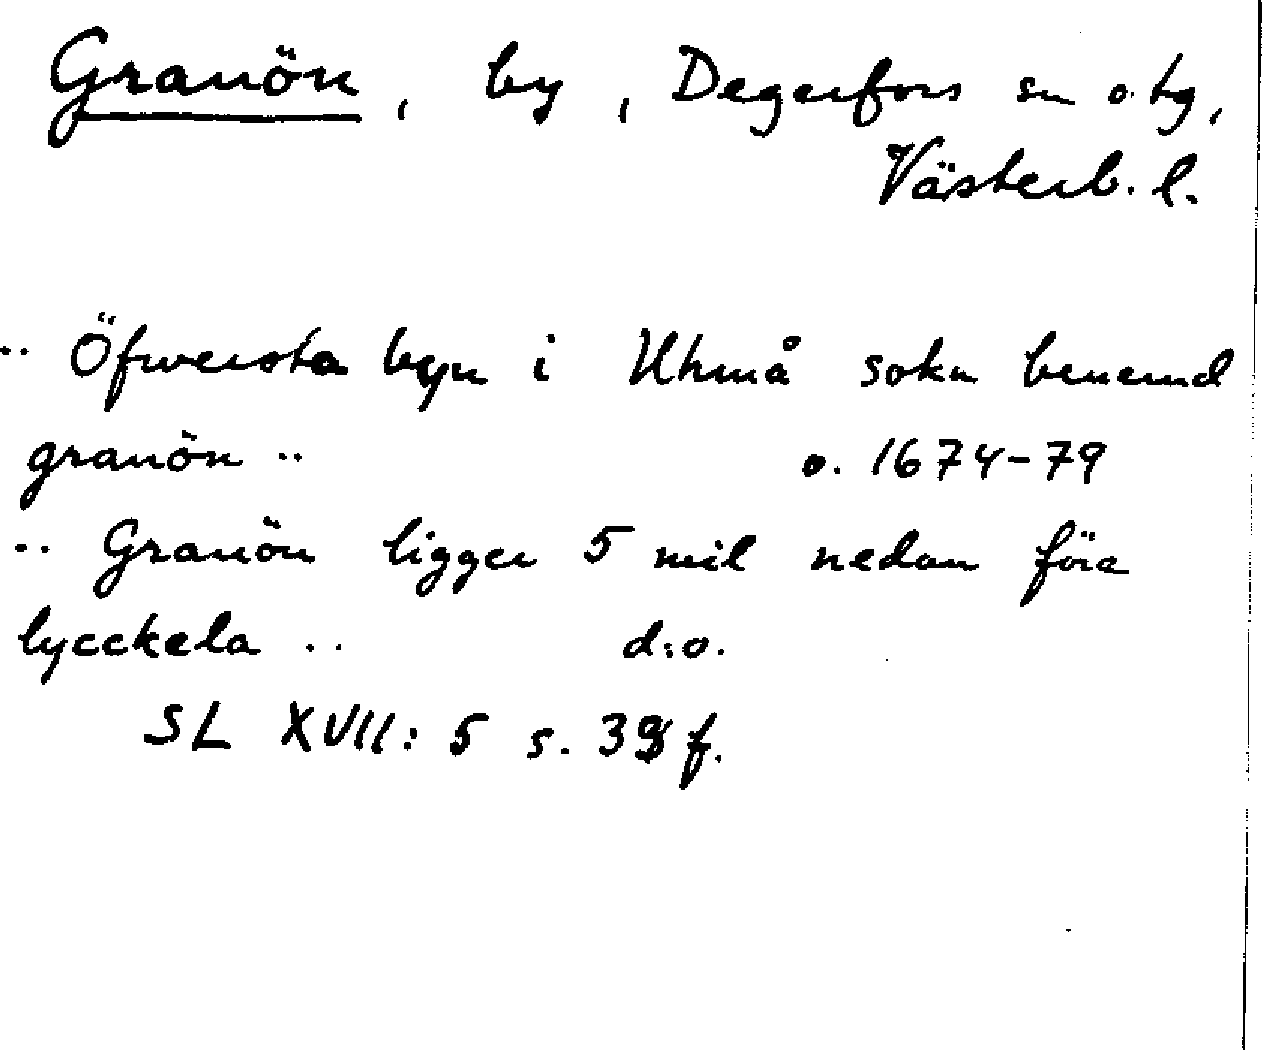 Granön, by, Degerfors sn o. tg,
Västerb. l.
.. Öfwersta byn i Uhmå sokn benemd
granön ..     o. 1674-79
.. Granön ligger 5 mil nedan föra
lycckela ..     d:o.
SL XVII: 5 s. 39 f.